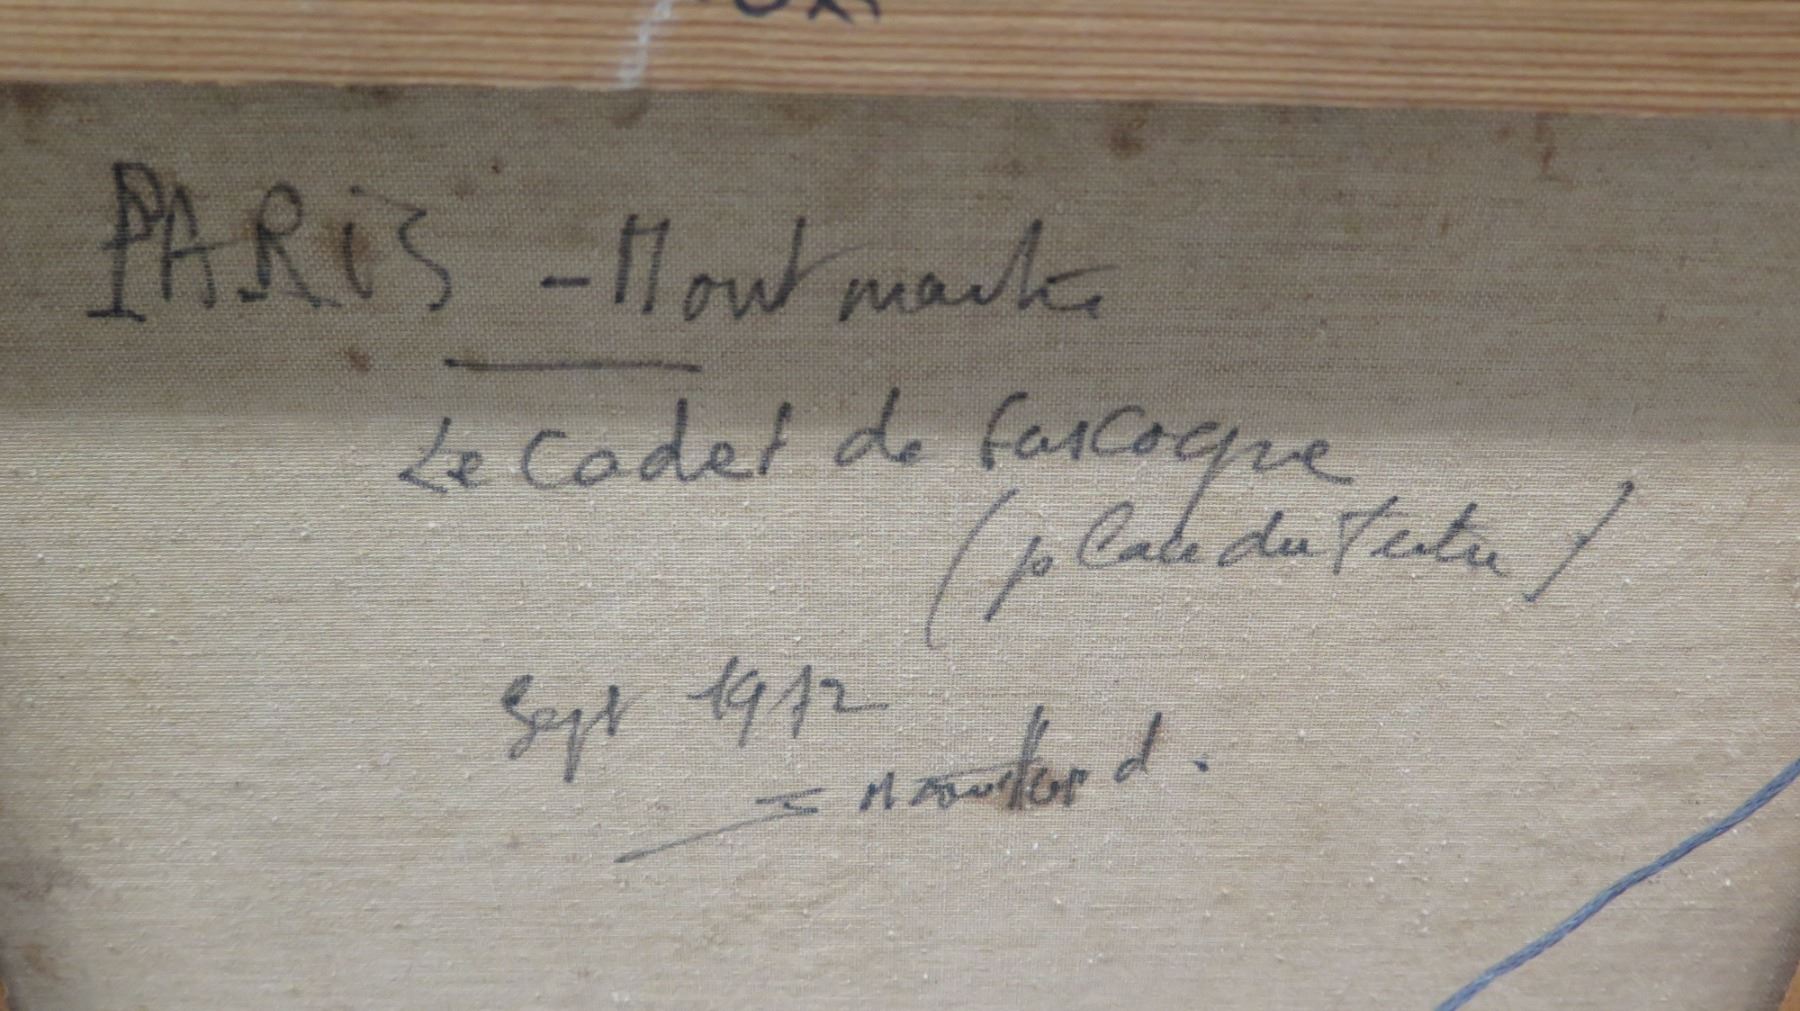 PARIS - Montmartre
Le Cadet de Gascogne
(place du Tertre)
Sept 1972